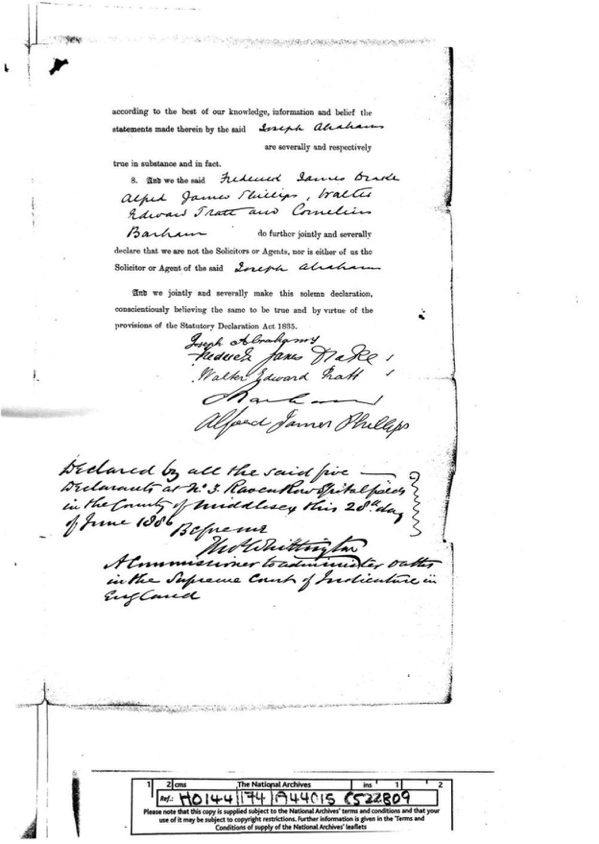 according to the best of our knowledge, information and belief the
statements made therein by the said Joseph Abrahams
are severally and respectively
true in substance and in fact.
8. And we the said Frederick James Drake
Alfred James Phillips, Walter
Edward Pratt and Cornelius
Barham do further jointly and severally
declare that we are not the Solicitors or Agents, nor is either of us the
Solicitor or Agent of the said Joseph Abrahams
And we jointly and severally make this solemn declaration,
conscientiously believing the same to be true and by virtue of the
provisions of the Statutory Declaration Act 1835.
Joseph Abrahams
Frederick James Drake
Walter Edward Pratt
C Barham
Alfred James Phillips
Declared by all the said five
Declarants at No. 3. Raven Row Spitalfields
in the County of Middlesex this 28th day
of June 1886
Before me
Thos Whittington
A Commissioner to administer oaths
in the Supreme Court of Judicature in
England
1 2 cms The National Archives ins 1 2
Ref.: HO 144 174 A44015 C522809
Please note that this copy is supplied subject to the National Archives' terms and conditions and that your
use of it may be subject to copyright restrictions. Further information is given in the 'Terms and
Conditions of supply of the National Archives' leaflets